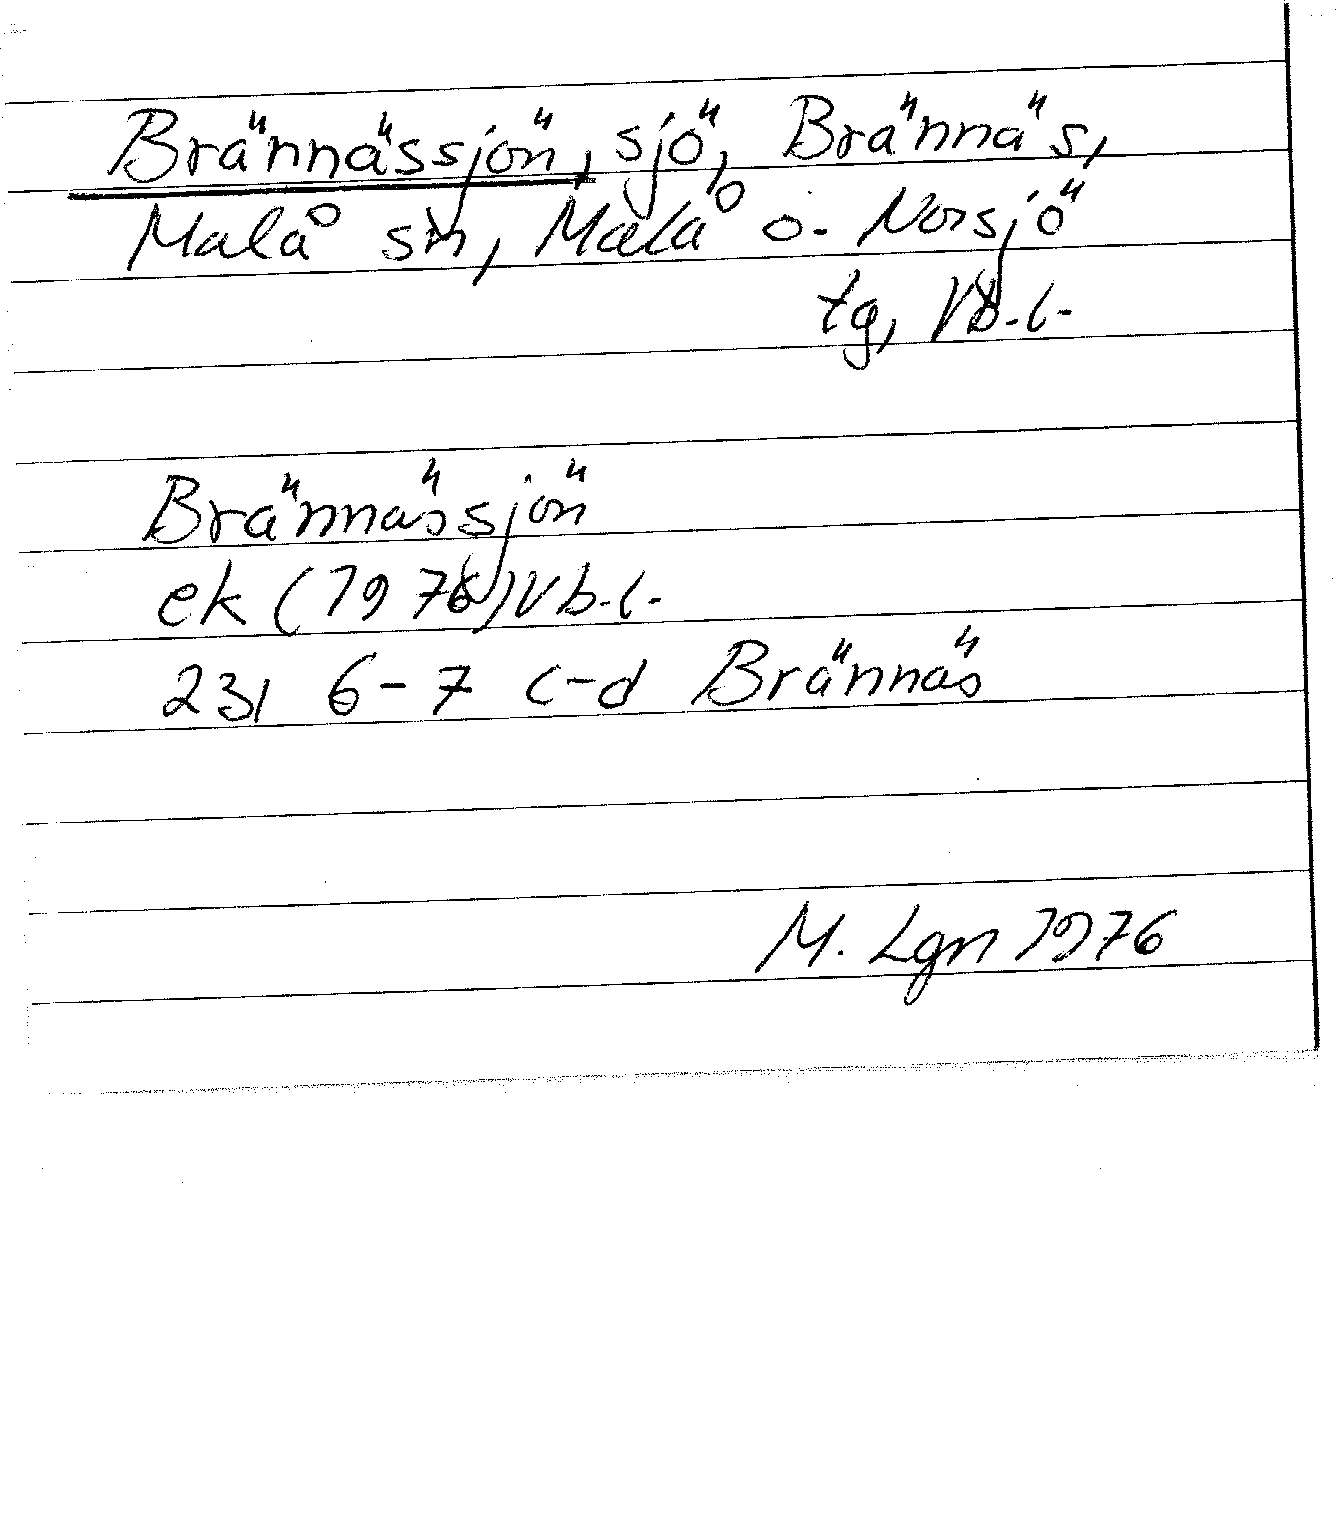 Brännässjön, sjö, Brännäs,
Malå sn, Malå o. Norsjö
tg, Vb.l.
Brännässjön
ek (1976) Vb.l.
23I 6-7 c-d Brännäs
M. Lgn 1976